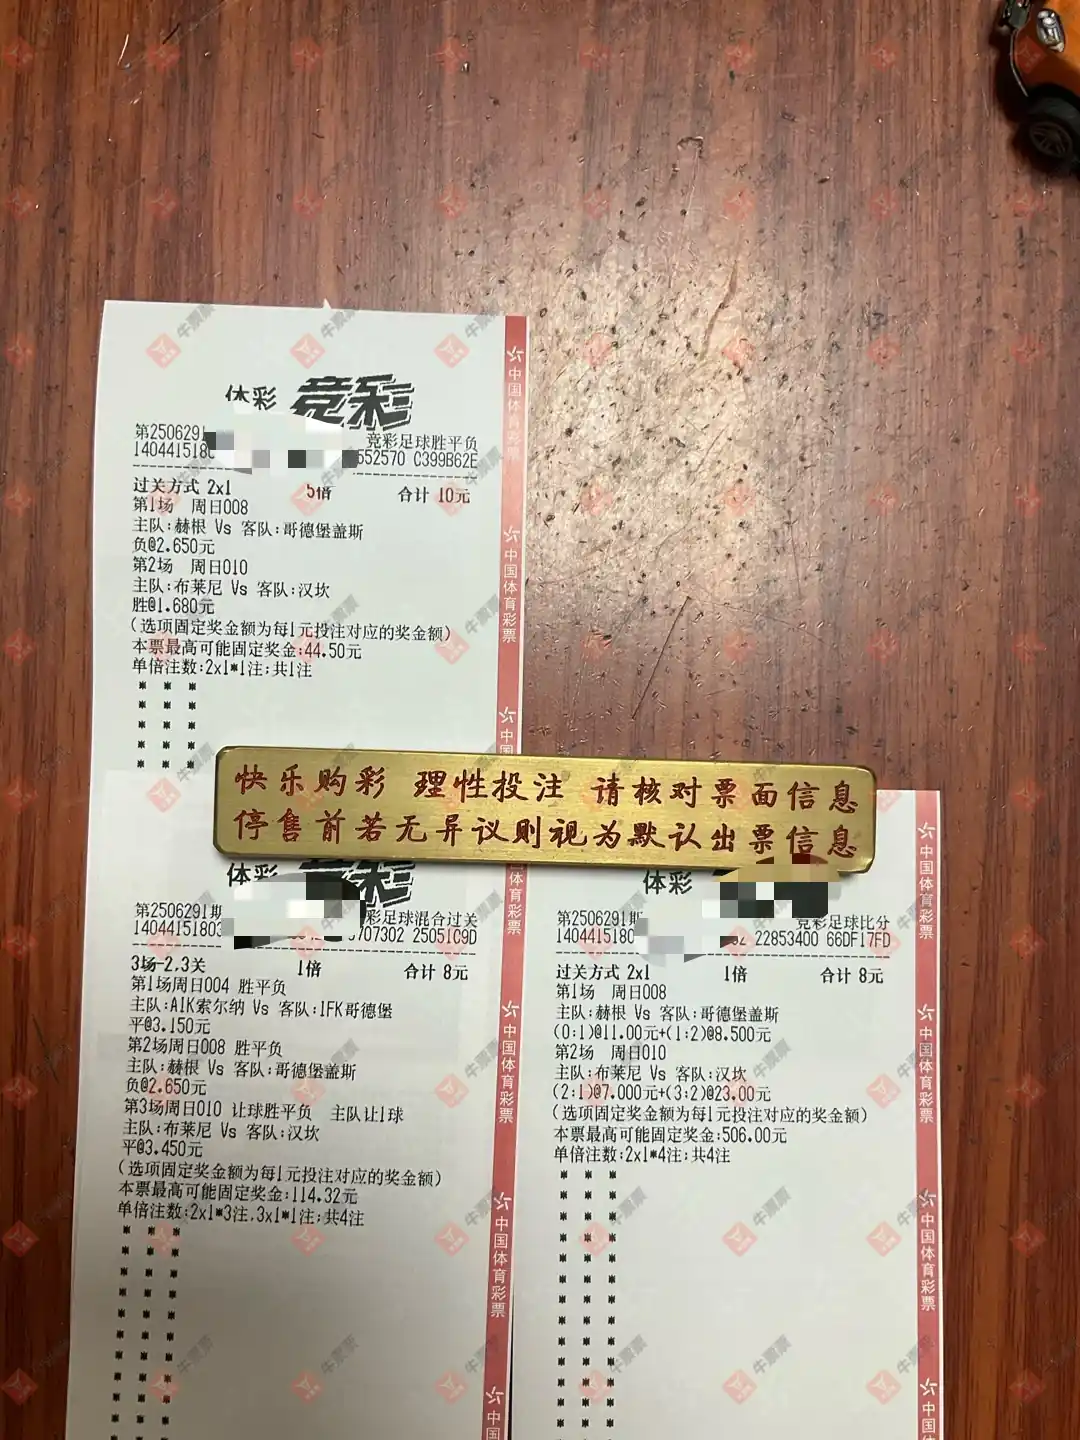 体彩 竞彩
第2506291
竞彩足球胜平负
140441518
552570 C399B62E
过关方式 2x1 5倍 合计 10元
第1场 周日008
主队:赫根 Vs 客队:哥德堡盖斯
负@2.650元
第2场 周日010
主队:布莱尼 Vs 客队:汉坎
胜@1.680元
(选项固定奖金额为每1元投注对应的奖金额)
本票最高可能固定奖金:44.50元
单倍注数:2x1*1注;共1注
快乐购彩 理性投注 请核对票面信息
停售前若无异议则视为默认出票信息
体彩 竞彩
第2506291期
彩足球混合过关
14044151803
707302 25051C9D
3场-2,3关 1倍 合计 8元
第1场周日004 胜平负
主队:AIK索尔纳 Vs 客队:IFK哥德堡
平@3.150元
第2场周日008 胜平负
主队:赫根 Vs 客队:哥德堡盖斯
负@2.650元
第3场周日010 让球胜平负 主队让1球
主队:布莱尼 Vs 客队:汉坎
平@3.450元
(选项固定奖金额为每1元投注对应的奖金额)
本票最高可能固定奖金:114.32元
单倍注数:2x1*3注,3x1*1注;共4注
体彩
第2506291期
竞彩足球比分
1404415180
22853400 66DF17FD
过关方式 2x1 1倍 合计 8元
第1场 周日008
主队:赫根 Vs 客队:哥德堡盖斯
(0:1)@11.00元+(1:2)@8.500元
第2场 周日010
主队:布莱尼 Vs 客队:汉坎
(2:1)@7.000元+(3:2)@23.00元
(选项固定奖金额为每1元投注对应的奖金额)
本票最高可能固定奖金:506.00元
单倍注数:2x1*4注;共4注
中国体育彩票
中国体育彩票
中国体育彩票
中国体育彩票
中国体育彩票
中国体育彩票
中国体育彩票
牛票票